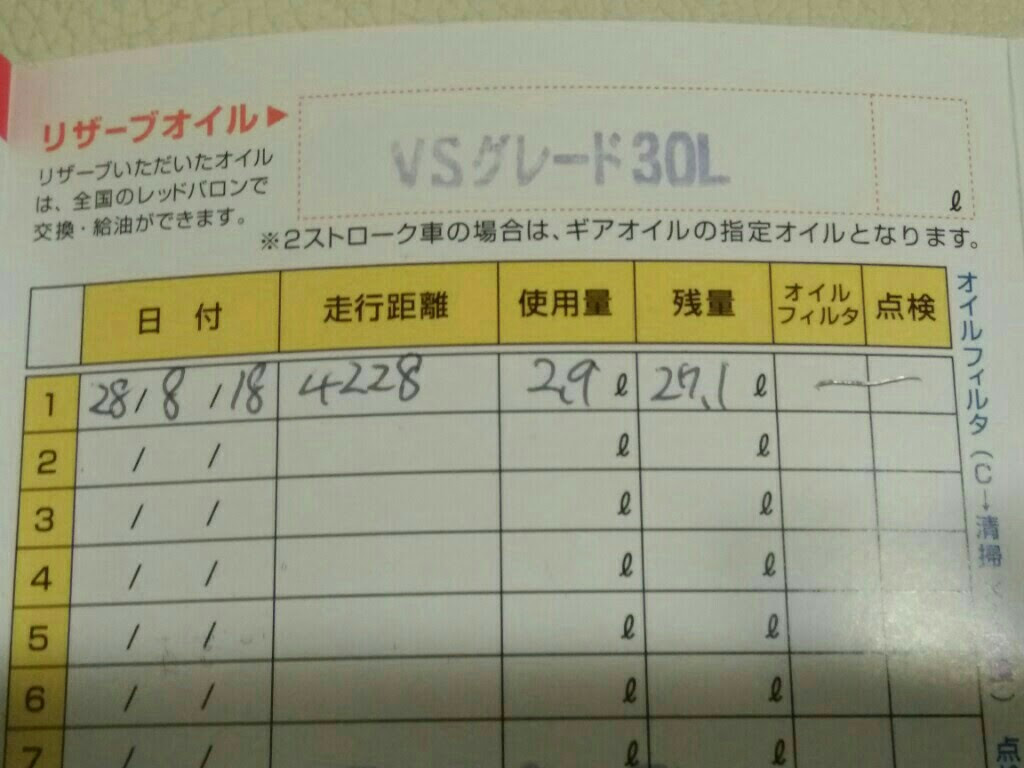 リザーブオイル▶
リザーブいただいたオイル
は、全国のレッドバロンで
交換・給油ができます。
VSグレード30L
ℓ
※2ストローク車の場合は、ギアオイルの指定オイルとなります。
日 付 走行距離 使用量 残量 オイルフィルタ 点検
1 28/8/18 4228 2,9ℓ 27,1ℓ —
2 / / ℓ ℓ
3 / / ℓ ℓ
4 / / ℓ ℓ
5 / / ℓ ℓ
6 / / ℓ ℓ
7 / / ℓ ℓ
オイルフィルタ(C→清掃
点